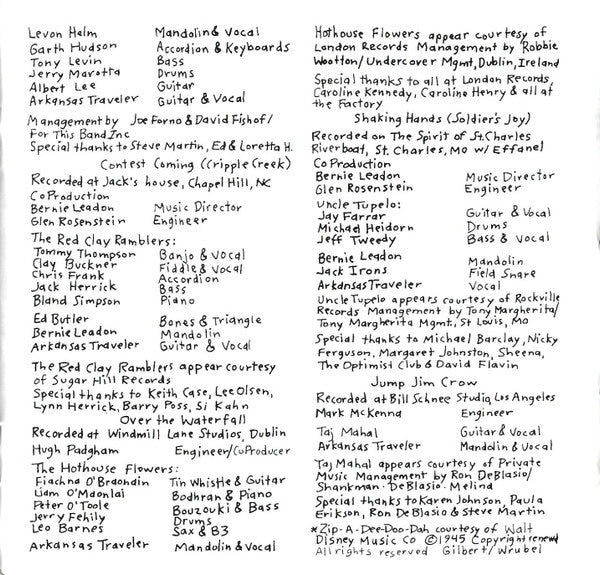 Levon Helm Mandolin & Vocal
Garth Hudson Accordion & Keyboards
Tony Levin Bass
Jerry Marotta Drums
Albert Lee Guitar
Arkansas Traveler Guitar & Vocal
Management by Joe Forno & David Fishof/
For This Band Inc
Special thanks to Steve Martin, Ed & Loretta H.
Contest Coming (Cripple Creek)
Recorded at Jack's house, Chapel Hill, NC
CoProduction
Bernie Leadon Music Director
Glen Rosenstein Engineer
The Red Clay Ramblers:
Tommy Thompson Banjo & Vocal
Clay Buckner Fiddle & Vocal
Chris Frank Accordion
Jack Herrick Bass
Bland Simpson Piano
Ed Butler Bones & Triangle
Bernie Leadon Mandolin
Arkansas Traveler Guitar & Vocal
The Red Clay Ramblers appear courtesy
of Sugar Hill Records
Special thanks to Keith Case, Lee Olsen,
Lynn Herrick, Barry Poss, Si Kahn
Over the Waterfall
Recorded at Windmill Lane Studios, Dublin
Hugh Padgham Engineer/CoProducer
The Hothouse Flowers:
Fiachna O'Braonain Tin Whistle & Guitar
Liam O'Maonlai Bodhran & Piano
Peter O'Toole Bouzouki & Bass
Jerry Fehily Drums
Leo Barnes Sax & B3
Arkansas Traveler Mandolin & Vocal
Hothouse Flowers appear courtesy of
London Records Management by Robbie
Wootton/Undercover Mgmt, Dublin, Ireland
Special thanks to all at London Records,
Caroline Kennedy, Caroline Henry & all at
the Factory
Shaking Hands (Soldier's Joy)
Recorded on The Spirit of St. Charles
Riverboat, St. Charles, MO w/ Effanel
CoProduction
Bernie Leadon Music Director
Glen Rosenstein Engineer
Uncle Tupelo:
Jay Farrar Guitar & Vocal
Michael Heidorn Drums
Jeff Tweedy Bass & Vocal
Bernie Leadon Mandolin
Jack Irons Field Snare
Arkansas Traveler Vocal
Uncle Tupelo appears courtesy of Rockville
Records Management by Tony Margherita/
Tony Margherita Mgmt, St Louis, MO
Special thanks to Michael Barclay, Nicky
Ferguson, Margaret Johnston, Sheena,
The Optimist Club & David Flavin
Jump Jim Crow
Recorded at Bill Schnee Studio, Los Angeles
Mark McKenna Engineer
Taj Mahal Guitar & Vocal
Arkansas Traveler Mandolin & Vocal
Taj Mahal appears courtesy of Private
Music Management by Ron DeBlasio/
Shankman · DeBlasio · Melina
Special thanks to Karen Johnson, Paula
Erikson, Ron DeBlasio & Steve Martin
*Zip-A-Dee-Doo-Dah courtesy of Walt
Disney Music Co ©1945 Copyright renewed
All rights reserved Gilbert/Wrubel